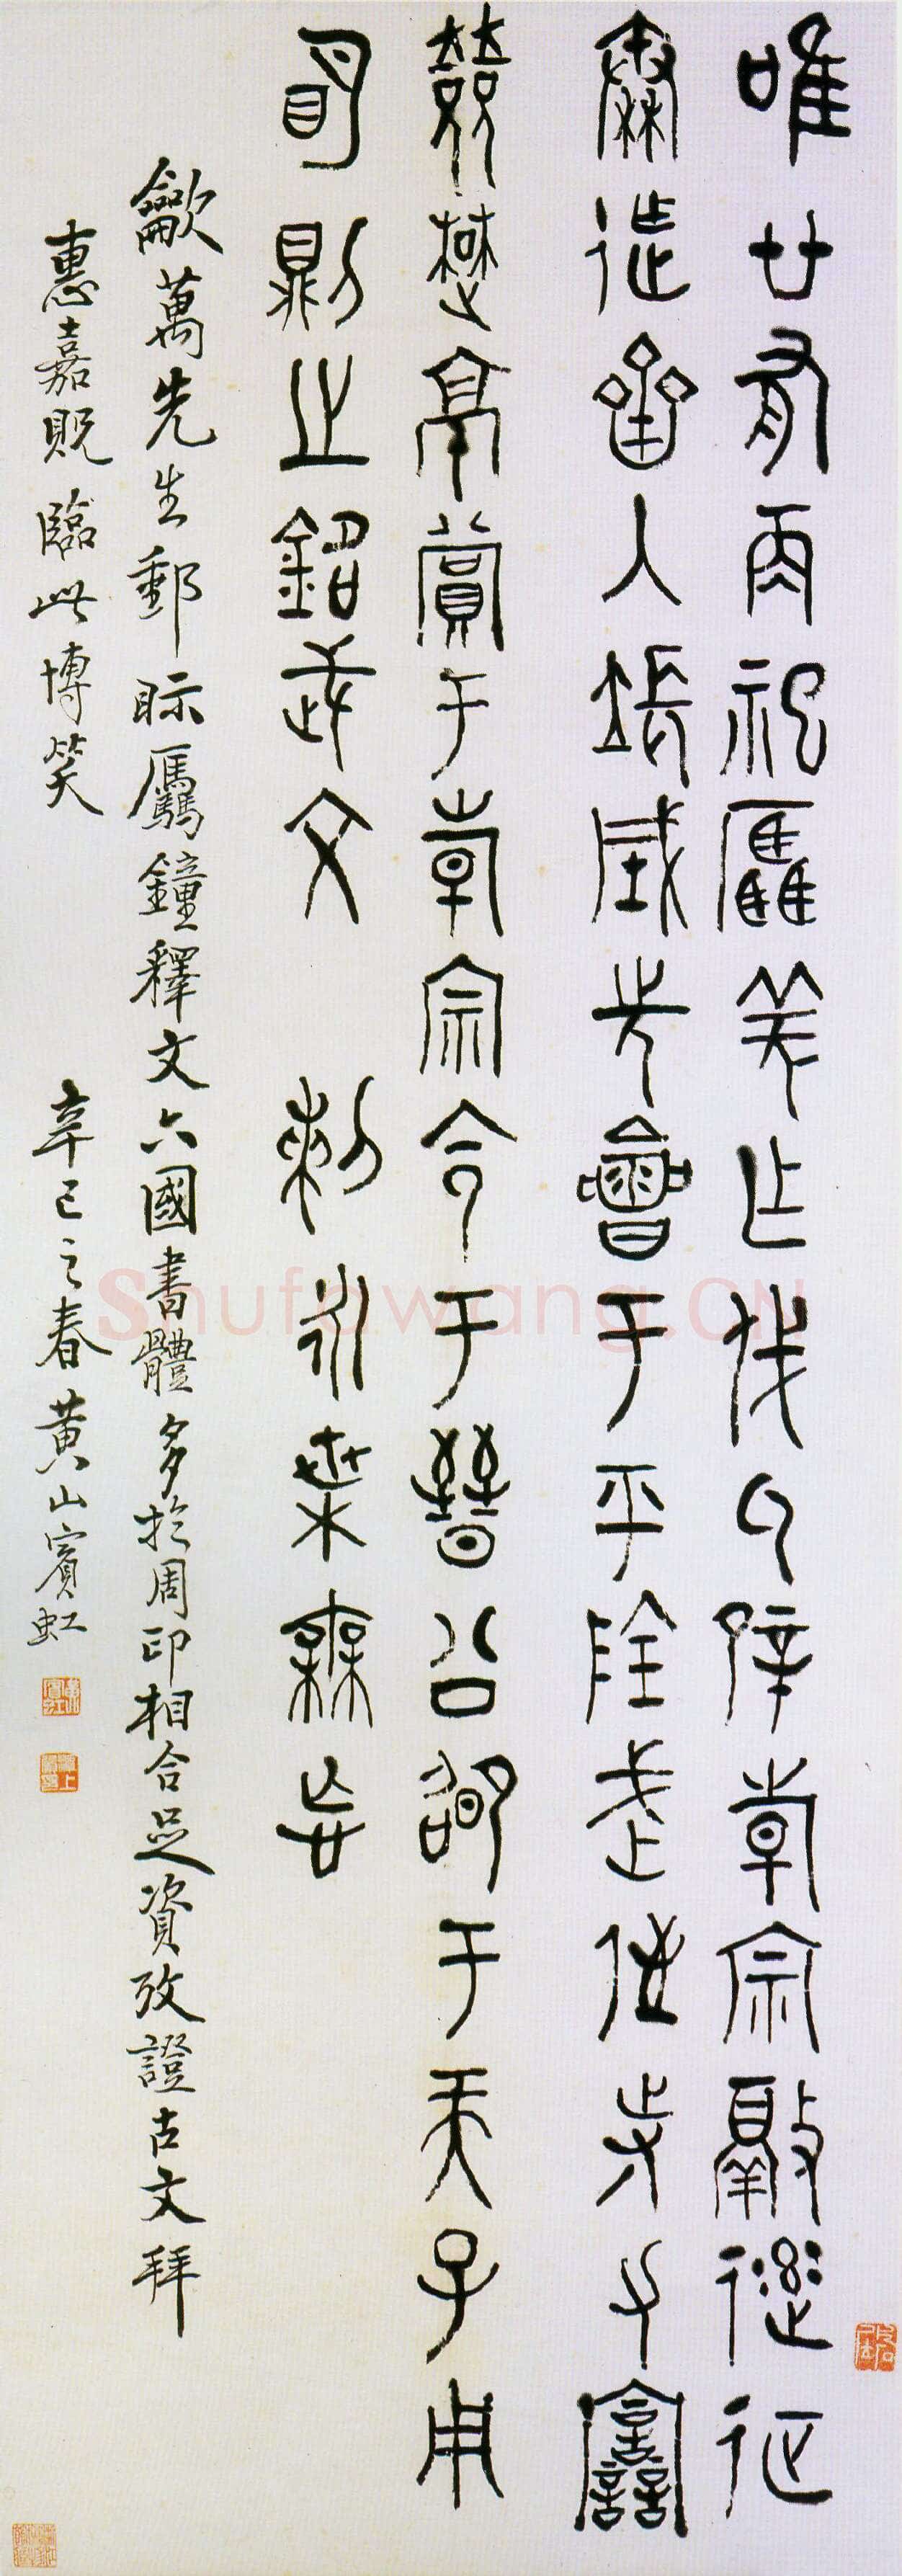 唯廿又再祀驫羌乍戎氒辟韓宗徹率征
秦迮齊入長城先會于平陰武侄寺力譶
敓楚京賞于韓宗令于晉公卲于天子用
明則之銘武文 剌永枼無忘
龡萬先生郵眎驫鐘釋文六國書體多於周印相合足資攷證古文拜
惠嘉貺臨此博笑 辛巳之春黃山賓虹
Shufawang.CN